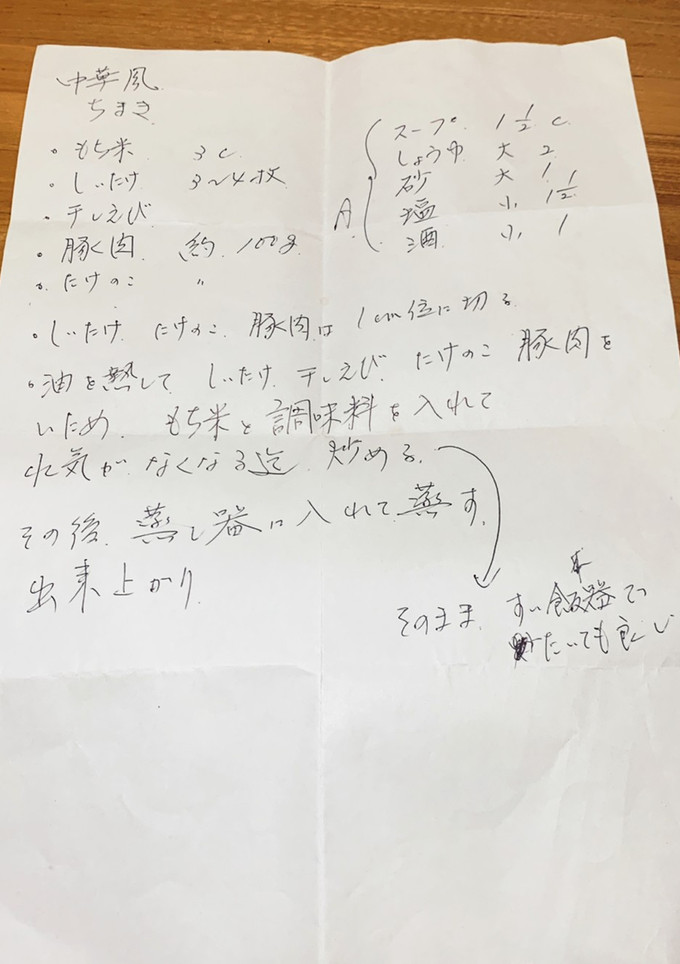 中華風
ちまき
・もち米 3c
・しいたけ 3〜4枚
・干しえび
・豚肉 約100g
・たけのこ 〃
A
スープ 1 1/2 c
しょうゆ 大 2
砂 大 1
塩 小 1 1/2
酒 小 1
・しいたけ たけのこ 豚肉は 1cm位に切る
・油を熱して しいたけ 干しえび たけのこ 豚肉を
いため もち米と調味料を入れて
水気が なくなる迄 炒める
その後 蒸し器に入れて 蒸す
出来上がり
そのまま すい飯器で
たいても良い